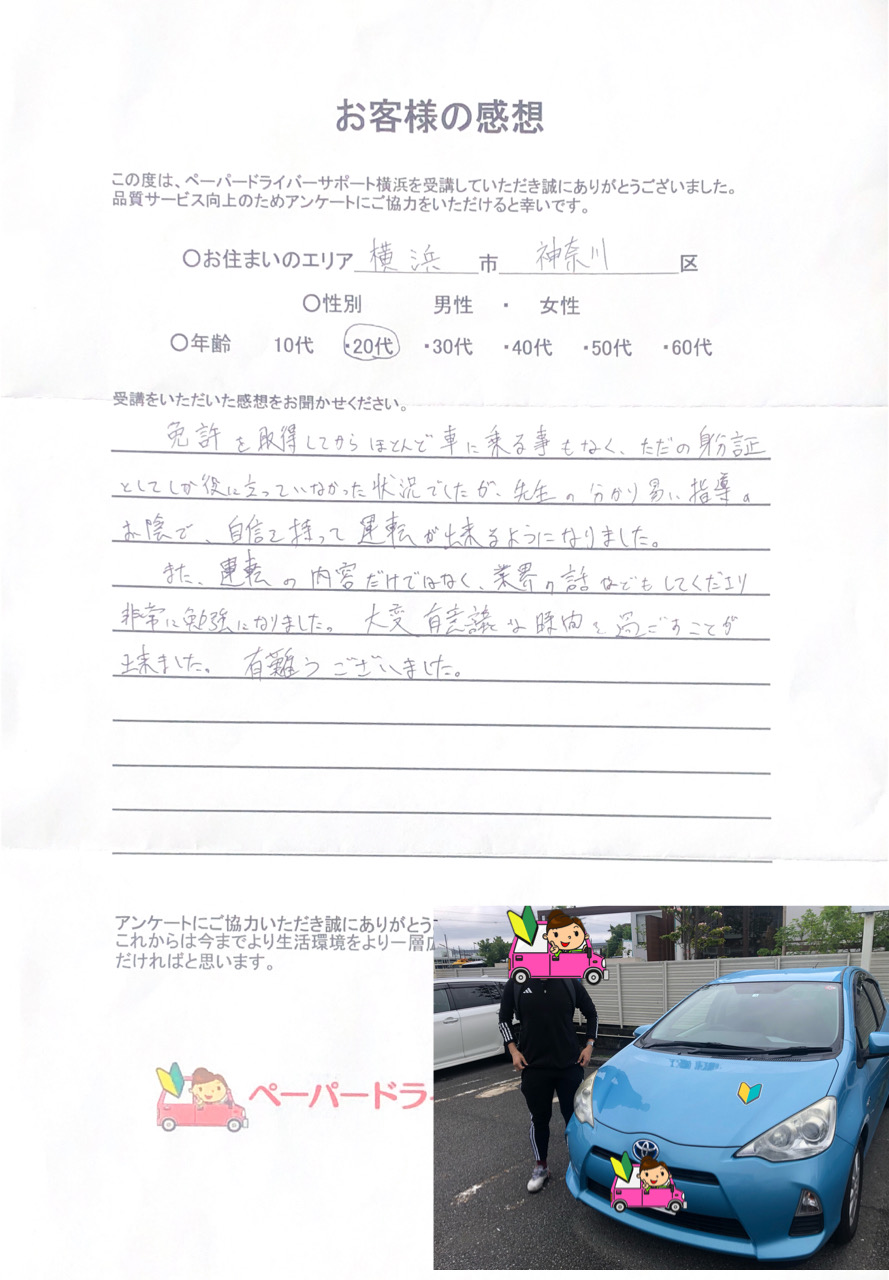 お客様の感想
この度は、ペーパードライバーサポート横浜を受講していただき誠にありがとうございました。
品質サービス向上のためアンケートにご協力をいただけると幸いです。
〇お住まいのエリア 横浜 市 神奈川 区
〇性別 男性 ・ 女性
〇年齢 10代 ・20代 ・30代 ・40代 ・50代 ・60代
受講をいただいた感想をお聞かせください。
免許を取得してからほとんど車に乗る事もなく、ただの身分証
としてしか役に立っていなかった状況でしたが、先生の分かり易い指導の
お陰で、自信を持って運転が出来るようになりました。
また、運転の内容だけではなく、業界の話などもしてくださり
非常に勉強になりました。大変有意義な時間を過ごすことが
出来ました。有難うございました。
アンケートにご協力いただき誠にありがとう
これからは今までより生活環境をより一層広
だければと思います。
ペーパードライ